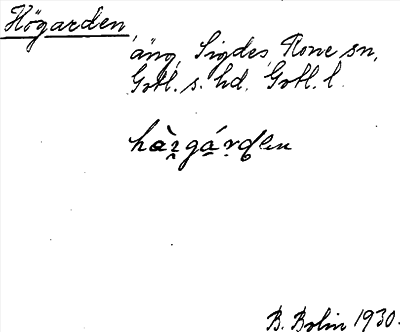 Högarden,
äng, Sigdes, Rone sn,
Gotl. s. hd. Gotl. l.
B. Bolin 1930.